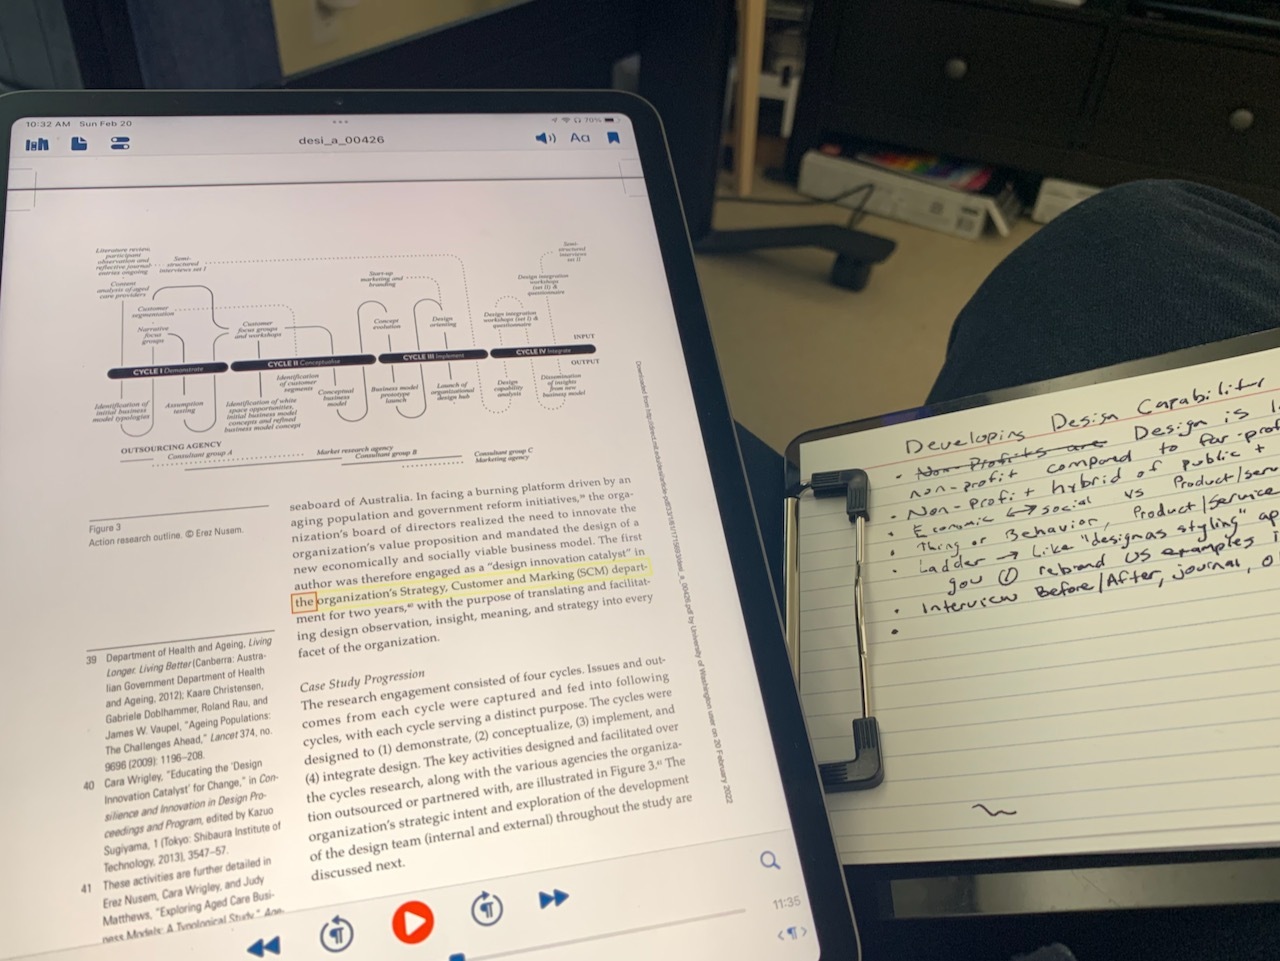 10:32 AM Sun Feb 20
70%
desi_a_00426
Aa
Literature review,
participant
observation and
reflective journal
entries ongoing
Semi-
structured
interviews set I
Content
analysis of aged
care providers
Customer
segmentation
Narrative
focus
groups
Customer
focus groups
and workshops
Start-up
marketing and
branding
Concept
evolution
Design
orienting
Semi-
structured
interviews
set II
Design integration
workshops
(set II) &
questionnaire
Design integration
workshops (set I) &
questionnaire
INPUT
CYCLE I Demonstrate
CYCLE II Conceptualise
CYCLE III Implement
CYCLE IV Integrate
OUTPUT
Identification of
initial business
model typologies
Assumption
testing
Identification
of customer
segments
Identification of white
space opportunities,
initial business model
concepts and refined
business model concept
Conceptual
business
model
Business model
prototype
launch
Launch of
organizational
design hub
Design
capability
analysis
Dissemination
of insights
from new
business model
OUTSOURCING AGENCY
Consultant group A
Market research agency
Consultant group B
Consultant group C
Marketing agency
Figure 3
Action research outline. © Erez Nusem.
seaboard of Australia. In facing a burning platform driven by an
aging population and government reform initiatives,³⁹ the orga-
nization's board of directors realized the need to innovate the
organization's value proposition and mandated the design of a
new economically and socially viable business model. The first
author was therefore engaged as a "design innovation catalyst" in
the organization's Strategy, Customer and Marking (SCM) depart-
ment for two years,⁴⁰ with the purpose of translating and facilitat-
ing design observation, insight, meaning, and strategy into every
facet of the organization.
Case Study Progression
The research engagement consisted of four cycles. Issues and out-
comes from each cycle were captured and fed into following
cycles, with each cycle serving a distinct purpose. The cycles were
designed to (1) demonstrate, (2) conceptualize, (3) implement, and
(4) integrate design. The key activities designed and facilitated over
the cycles research, along with the various agencies the organiza-
tion outsourced or partnered with, are illustrated in Figure 3.⁴¹ The
organization's strategic intent and exploration of the development
of the design team (internal and external) throughout the study are
discussed next.
39 Department of Health and Ageing, Living
Longer. Living Better (Canberra: Austra-
lian Government Department of Health
and Ageing, 2012); Kaare Christensen,
Gabriele Doblhammer, Roland Rau, and
James W. Vaupel, "Ageing Populations:
The Challenges Ahead," Lancet 374, no.
9696 (2009): 1196–208.
40 Cara Wrigley, "Educating the 'Design
Innovation Catalyst' for Change," in Con-
silience and Innovation in Design Pro-
ceedings and Program, edited by Kazuo
Sugiyama, 1 (Tokyo: Shibaura Institute of
Technology, 2013), 3547–57.
41 These activities are further detailed in
Erez Nusem, Cara Wrigley, and Judy
Matthews, "Exploring Aged Care Busi-
ness Models: A Typological Study," Age-
desi_a_00426.pdf by University of Washington user on 20 February 2022
11:35
Developing Design Capability
• Non-Profits are Design is
non-profit compared to for-prof
• Non-Profit hybrid of public +
• Economic ↔ social vs Product/serv
• Thing or Behavior, Product/Service
• Ladder → Like "design as styling" ap
you ① rebrand us examples i
• Interview Before/After, journal, o
•